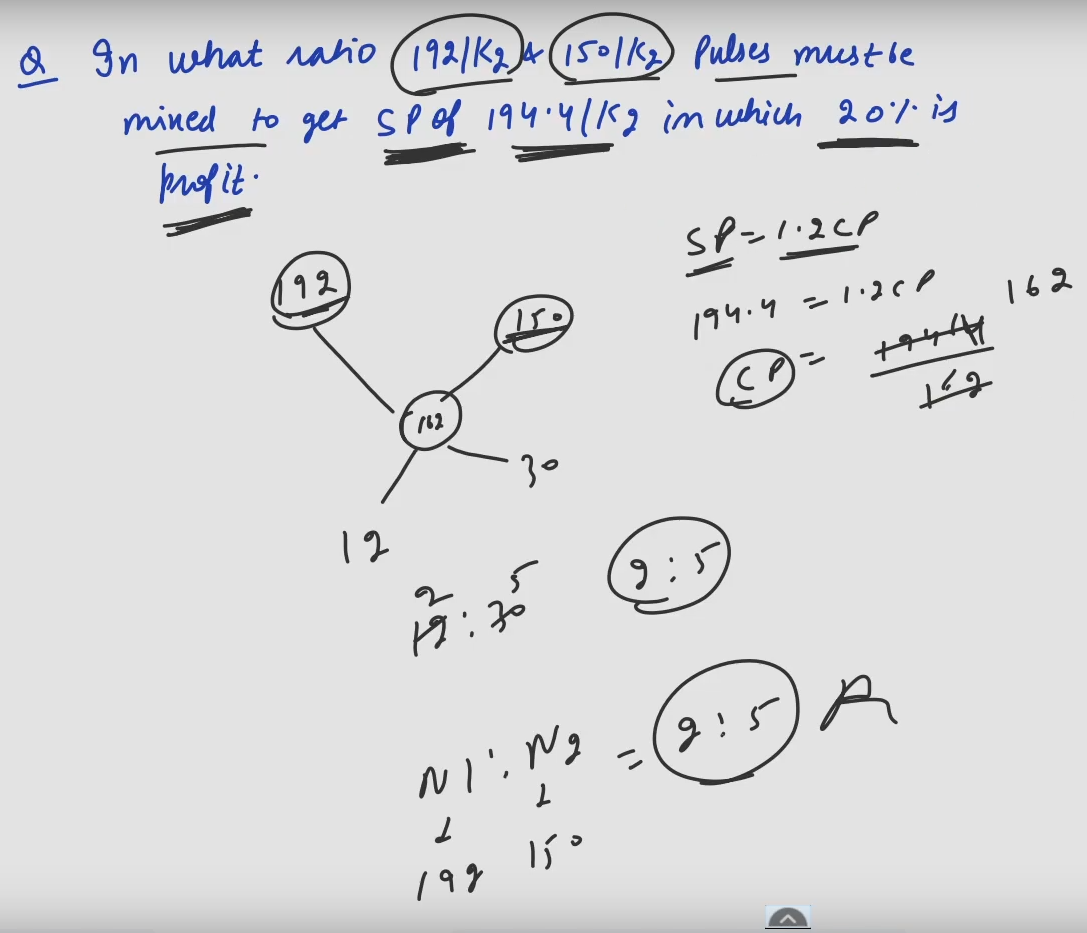 Q In what ratio 192/Kg & 150/Kg Pulses must be
mixed to get SP of 194.4/Kg in which 20% is
profit.
SP = 1.2CP
194.4 = 1.2CP 162
CP = 194.4
1.2
192
150
162
30
12
2 5
12 : 30
2 : 5
N1 : N2 = 2 : 5 A
192 150